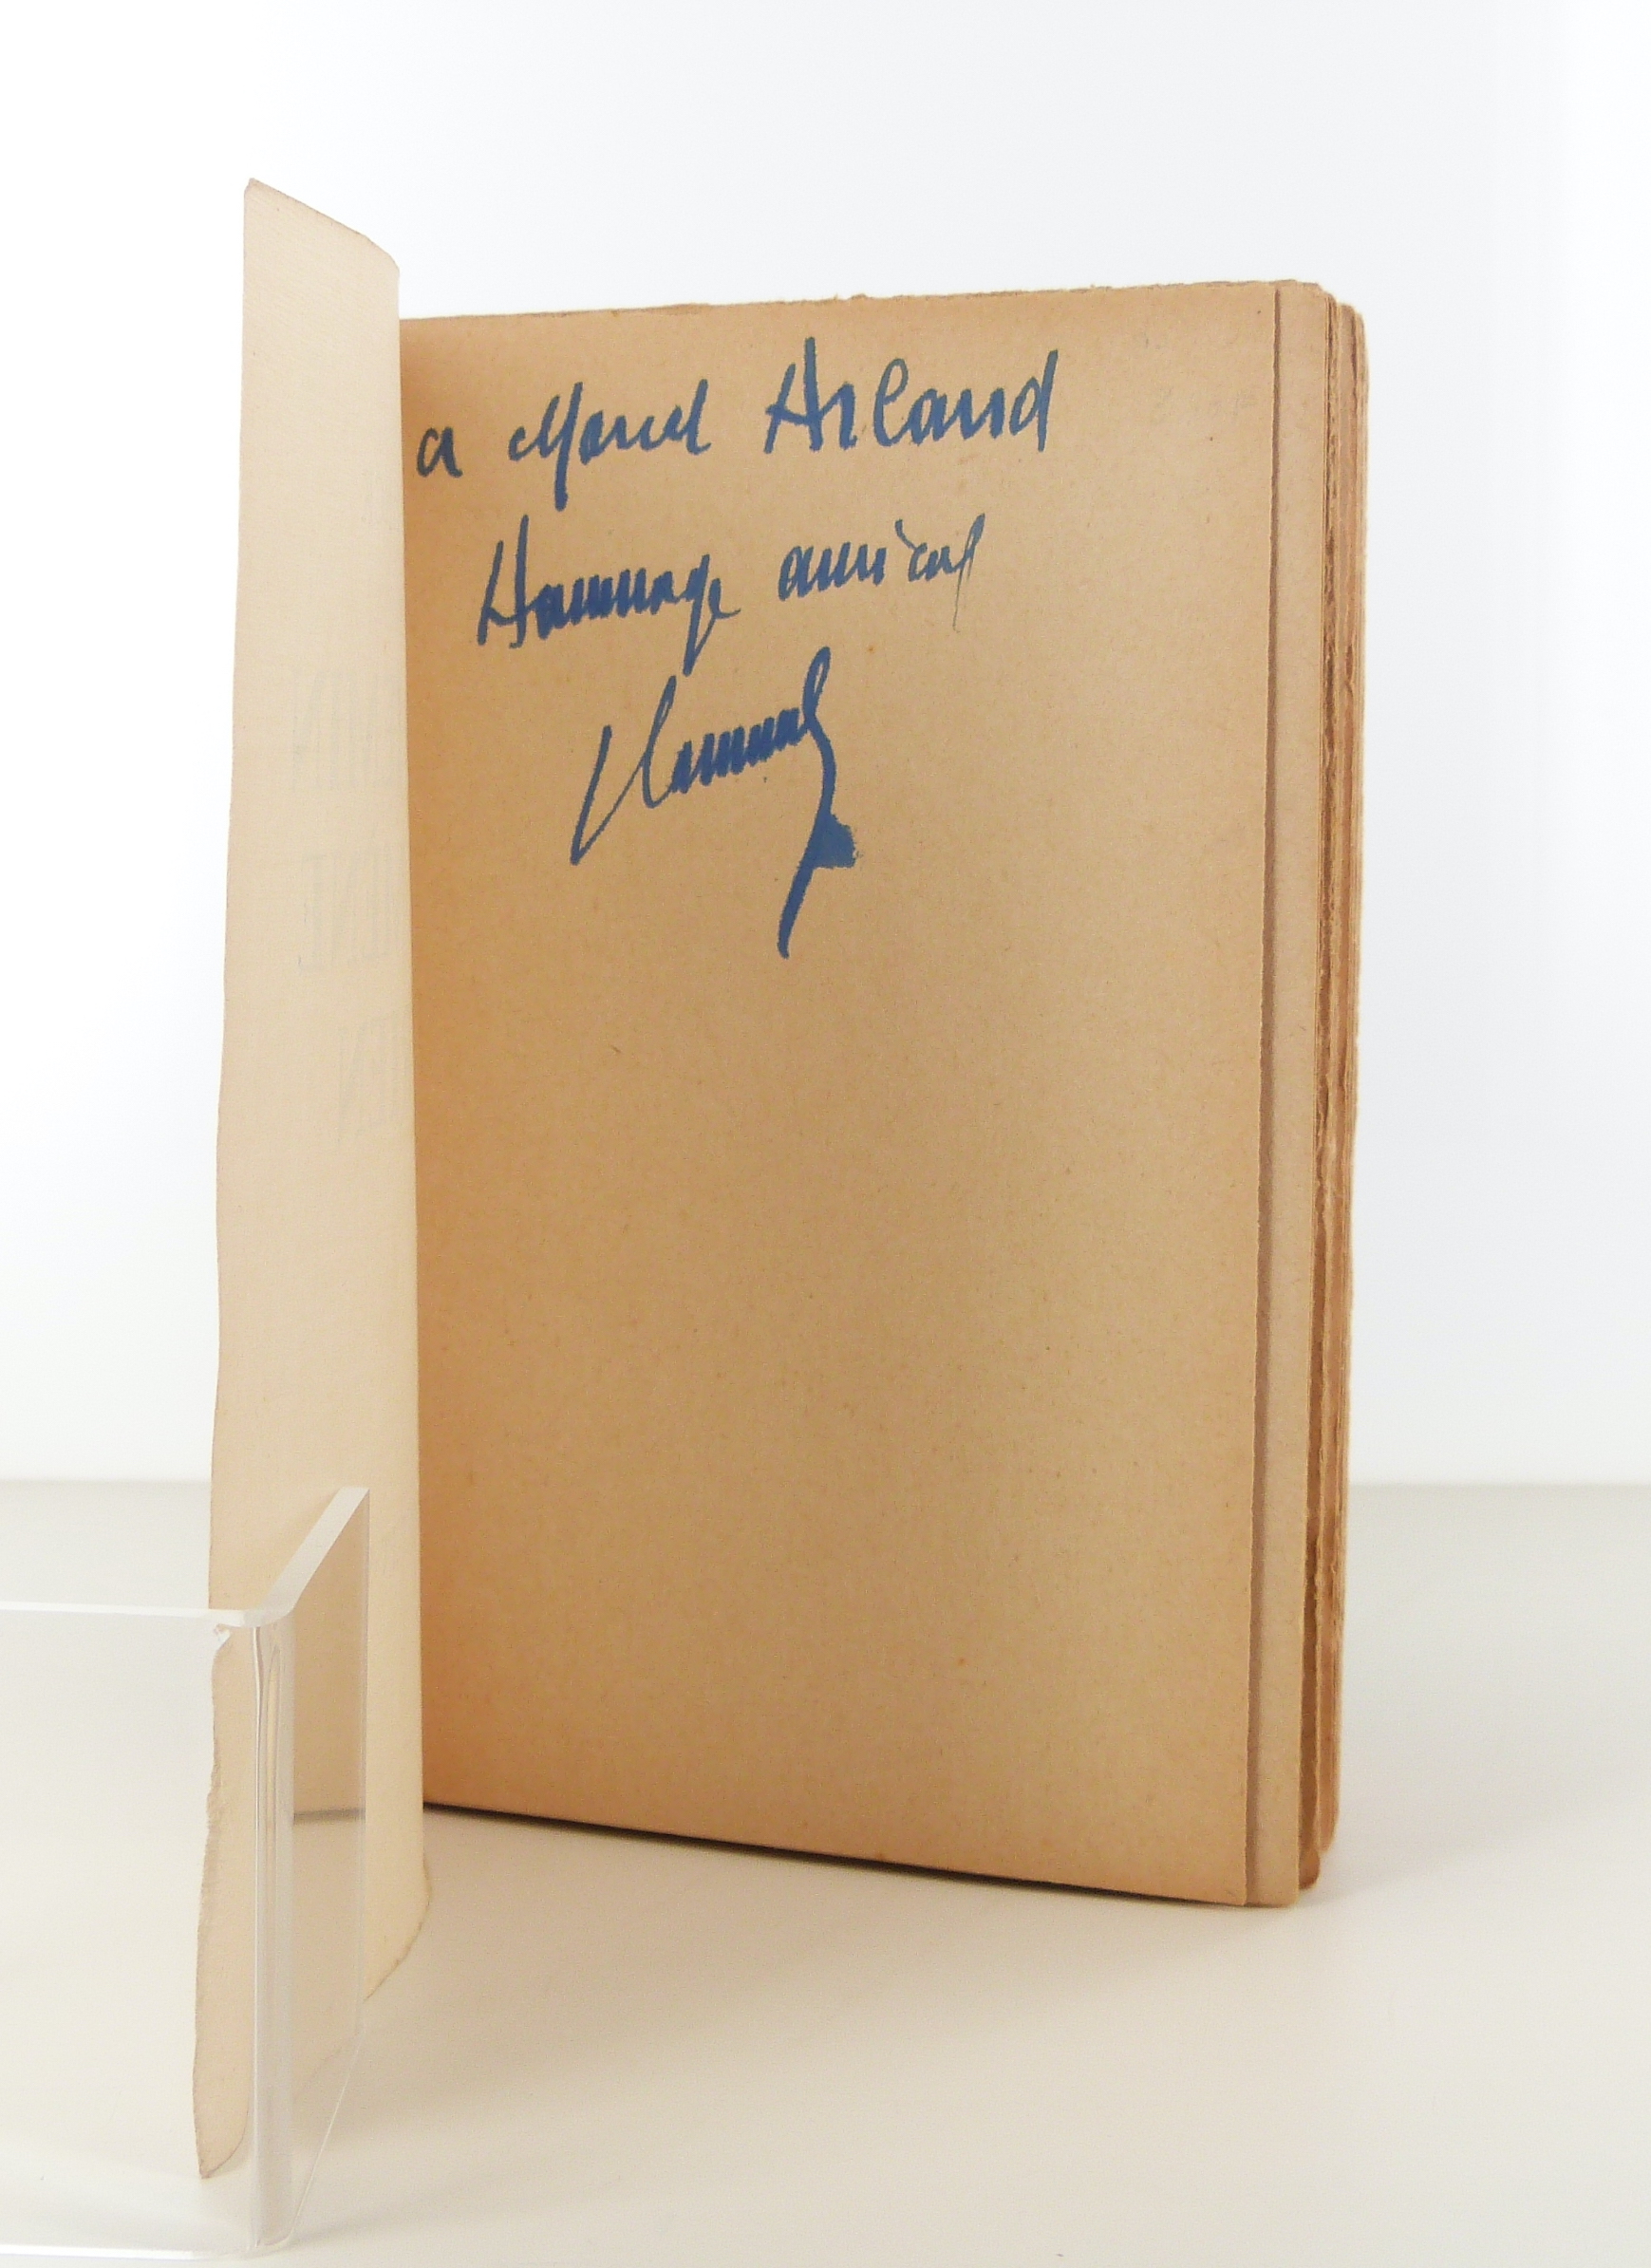 a Marcel Arland
Hommage amical
Vlaminck